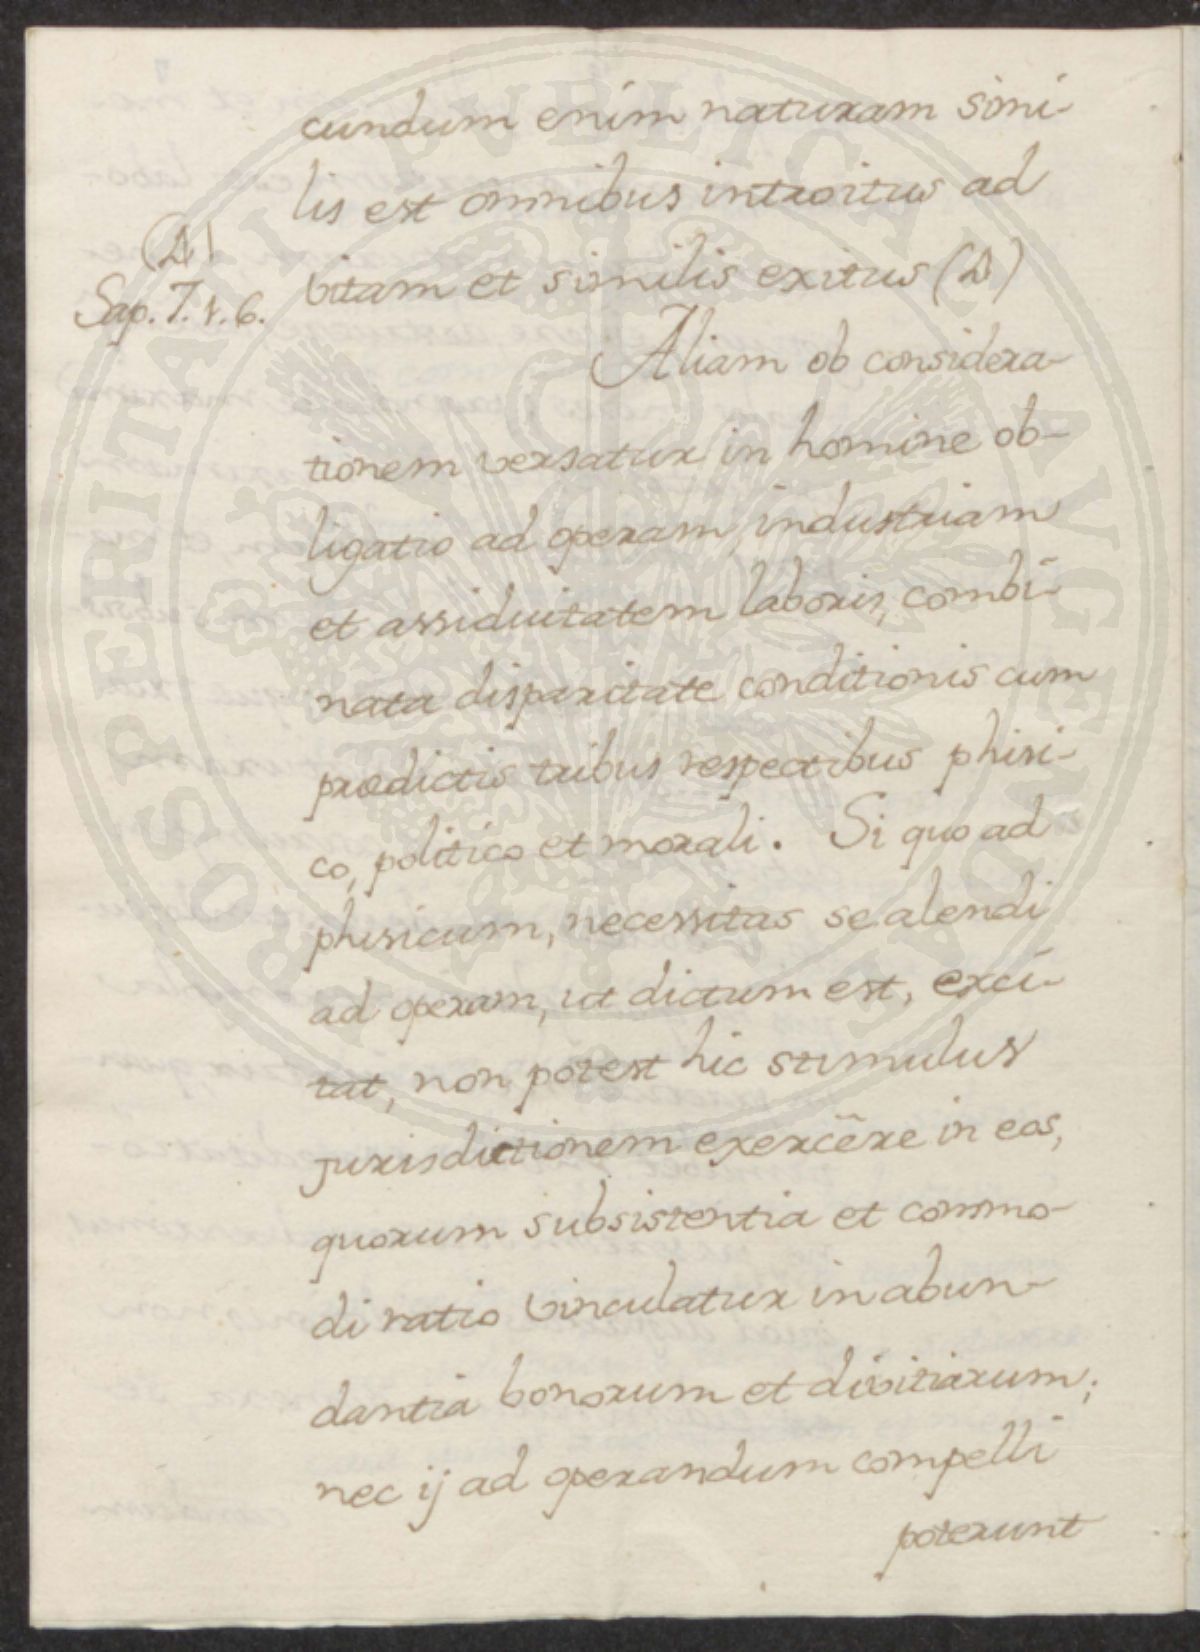 cundum enim naturam simi-
lis est omnibus introitus ad
(A)
Sap. 7. v. 6.
vitam et similis exitus (A)
Aliam ob considera-
tionem versatur in homine ob-
ligatio ad operam, industriam
et assiduitatem laboris, combi-
nata disparitate conditionis cum
prædictis tribus respectibus phisi-
co, politico et morali. Si quo ad
phisicum, necessitas se alendi
ad operam, ut dictum est, exci-
tat, non potest hic stimulus
jurisdictionem exercēre in eos,
quorum subsistentia et commo-
di ratio vinculatur in abun-
dantia bonorum et divitiarum;
nec ij ad operandum compelli
poterunt
PROSPERITATI PVBLICAE AVGENDAE